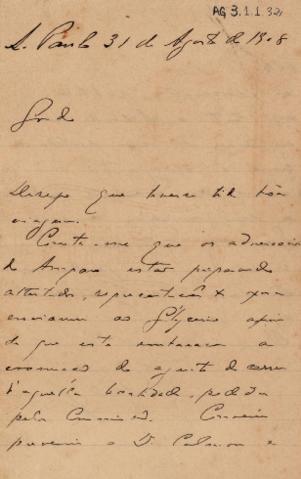 AG 3.1.1.32
S. Paulo 31 de Agosto de 1908
Desejo que tivesse tido bôa
viagem.
Consta-me que os adversarios
de Amparo estão preparando
attestados, representação &
enviarem ao Glycerio afim
de que este embarace a
nomeação do agente do correio
d'aquella localidade, pedida
pela Commissão. Convem
prevenir o Dr. Calmon e